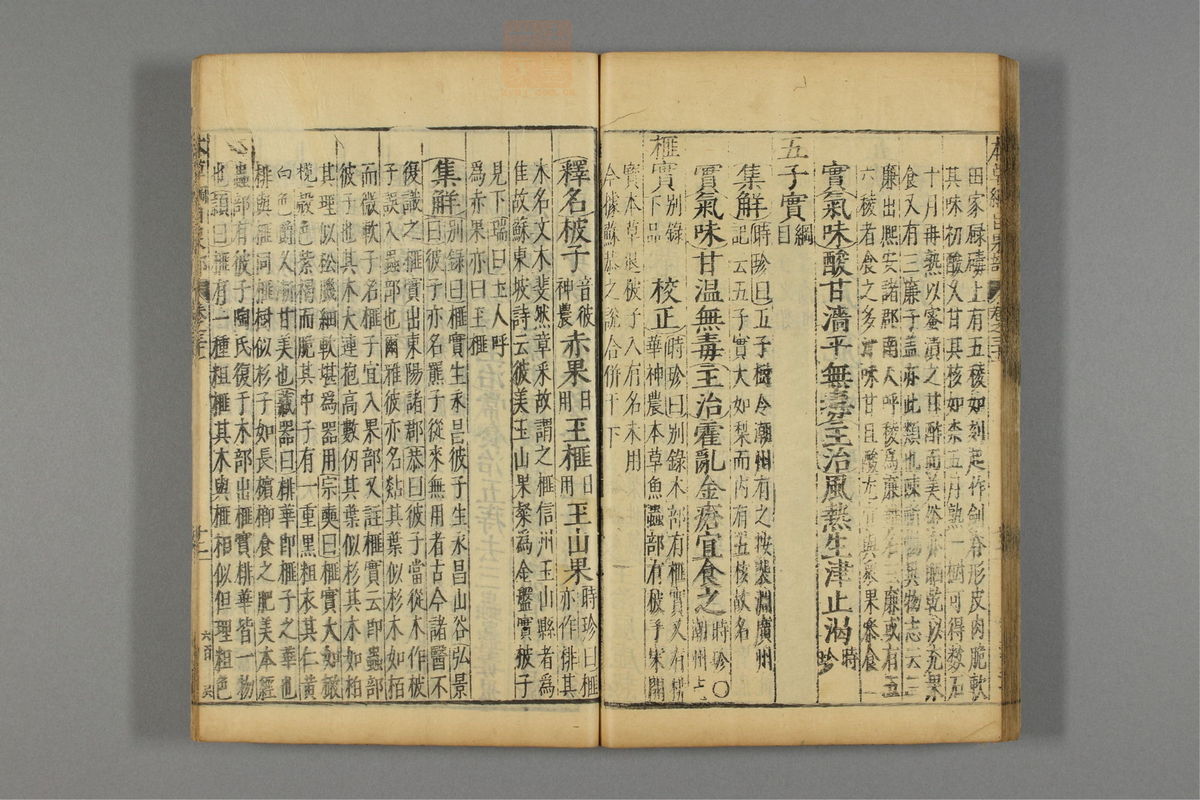 田家𠪨上有五稜如刻起作劍脊形皮肉脆軟
其味初酸久甘其核如柰五月熟一樹可得數石
十月再熟以蜜漬之甘酢而美
食又有三廉子蓋亦此類也陳
廉出熙安諸郡南人呼稜爲廉
六稜者食之多汁味甘且酸尤宜與衆果參食
實氣味酸甘濇平無毒主治風熱生津止渴時珍
五子實綱目
集解時珍曰五子樹今潮州有之按裴淵廣州
記云五子實大如梨而內有五核故名
實氣味甘温無毒主治霍亂金瘡宜食之時珍○潮州
榧實別錄下品 校正時珍曰別錄木部有榧實又有
華神農本草魚蟲部有彼子宋開
寶本草退彼子入有名未用
今據蘇恭之說合併于下
釋名柀子音彼神農 赤果日用 玉榧日用 玉山果時珍曰榧亦作棑其
木名文木斐然章采故謂之榧信州玉山縣者爲
佳故蘇東坡詩云彼美玉山果粲爲金盤實彼子
見下瑞曰土人呼
爲赤果亦曰玉榧
集解別錄曰榧實生永昌彼子生永昌山谷弘景
曰彼子亦名羆子從來無用者古今諸醫不
復識之榧實出東陽諸郡恭曰彼子當從木作柀
子誤入蟲部也爾雅柀亦名䊀其葉似杉木如柏
而微軟子名榧子宜入果部又註榧實云即蟲部
彼子也其木大連抱高數仞其葉似杉其木如柏
其理似松肌細軟堪爲器用宗奭曰榧實大如橄
欖殼色紫褐而脆其中子有一重黑粗衣其仁黃
白色嚼久漸甘美也藏器曰棑華即榧子之華也
棑與榧同榧樹似杉子如長檳榔食之肥美本經
蟲部有彼子陶氏復于木部出榧實棑華皆一物
也頌曰榧有一種粗榧其木與榧相似但理粗色